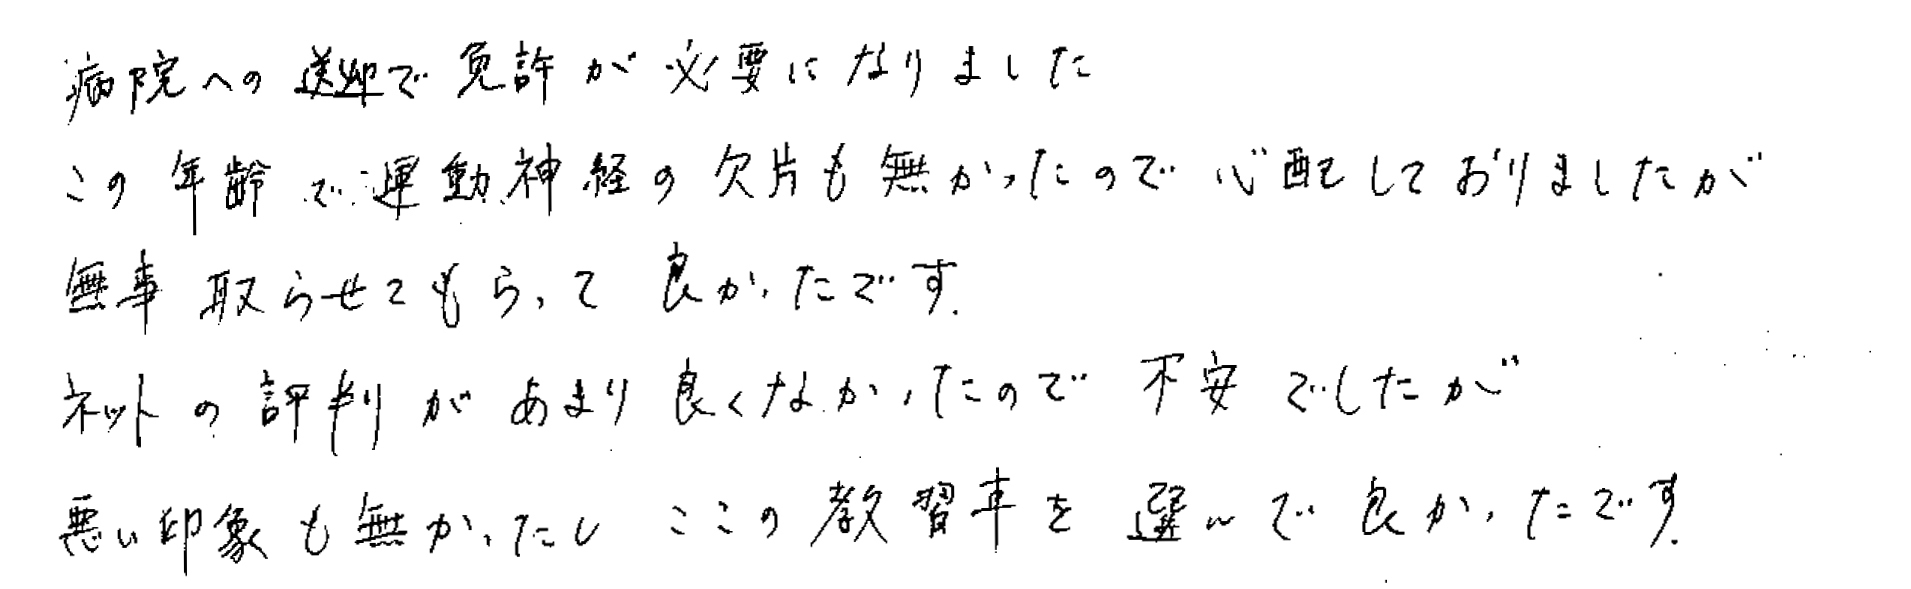 病院への送迎で免許が必要になりました
この年齢で運動神経の欠片も無かったので心配しておりましたが
無事取らせてもらって良かったです.
ネットの評判があまり良くなかったので不安でしたが
悪い印象も無かったし ここの教習車を選んで良かったです.